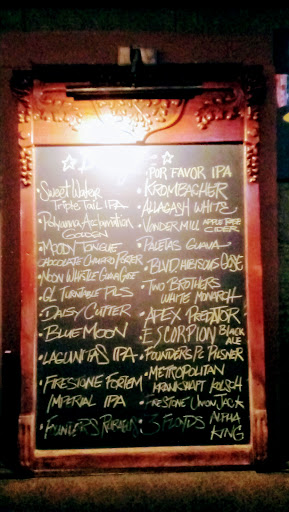 • Sweet Water
Triple Tail IPA
GOLDEN
• MOODY TONGUE
CHOCOLATE CHURRO PORTER
• NOON WHISTLE
• GL TURNTABLE PILS
• DAISY CUTTER
• BLUE MOON
• LAGUNITAS IPA
• FIRESTONE
IMPERIAL IPA
• FOUNDERS
• POR FAVOR IPA
• KROMBACHER
• ALLAGASH WHITE
• VANDERMILL APPLE
CIDER
• PALETAS GUAVA
• BLVD. HIBISCUS GOSE
• TWO BROTHERS
WHITE MONARCH
• APEX PREDATOR
ESCORPION BLACK
ALE
• FOUNDERS PC PILSNER
• METROPOLITAN
KRANKSHAFT KOLSCH
• FIRESTONE UNION JACK
• 3 FLOYDS ALPHA
KING